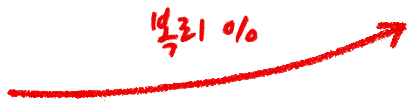 복리 %